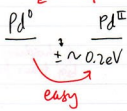 Pd⁰ Pdᴵᴵ
± ~0.2eV
easy